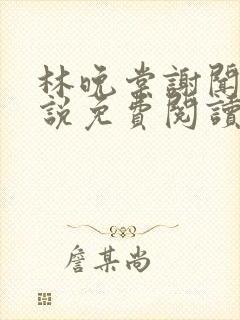 林晚棠謝聞
說免費閱讀
詹某尚